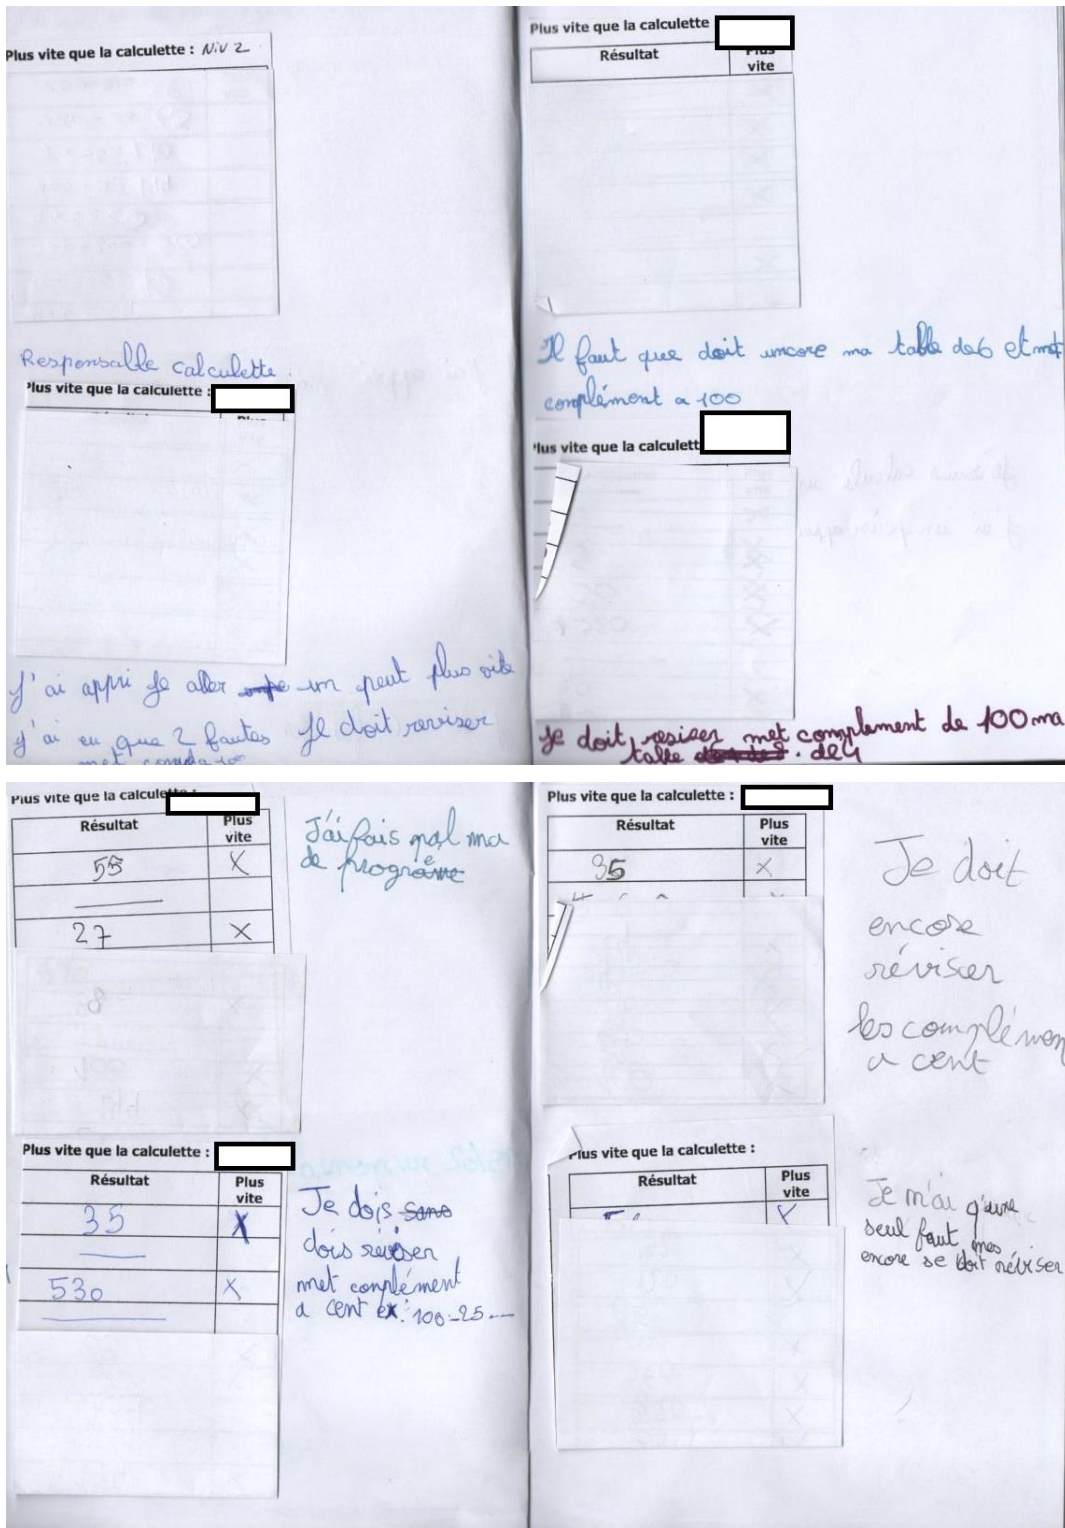 Plus vite que la calculette : Niv 2
Responsable calculette.
Plus vite que la calculette :
J'ai appri je aller un peut plus vite
j'ai eu que 2 fautes Je doit reviser
met
Plus vite que la calculette
Résultat
Plus vite
Il faut que doit encore ma table de 6 et met
complément a 100
Plus vite que la calculett
je doit resiser met complement de 100 ma
table de 4
Plus vite que la calculette :
Résultat
Plus vite
55 X
27 X
J'ai fais mal ma
de
Plus vite que la calculette :
Résultat
Plus vite
35 X
530 X
Je dois
dois réviser
met conplément
a cent ex: 100-25....
Plus vite que la calculette :
Résultat
Plus vite
35 X
Je doit
encore
réviser
les complémen
a cent
Plus vite que la calculette :
Résultat
Plus vite
X
Je m'ai q'une
seul faut mes
encore se doit réviser